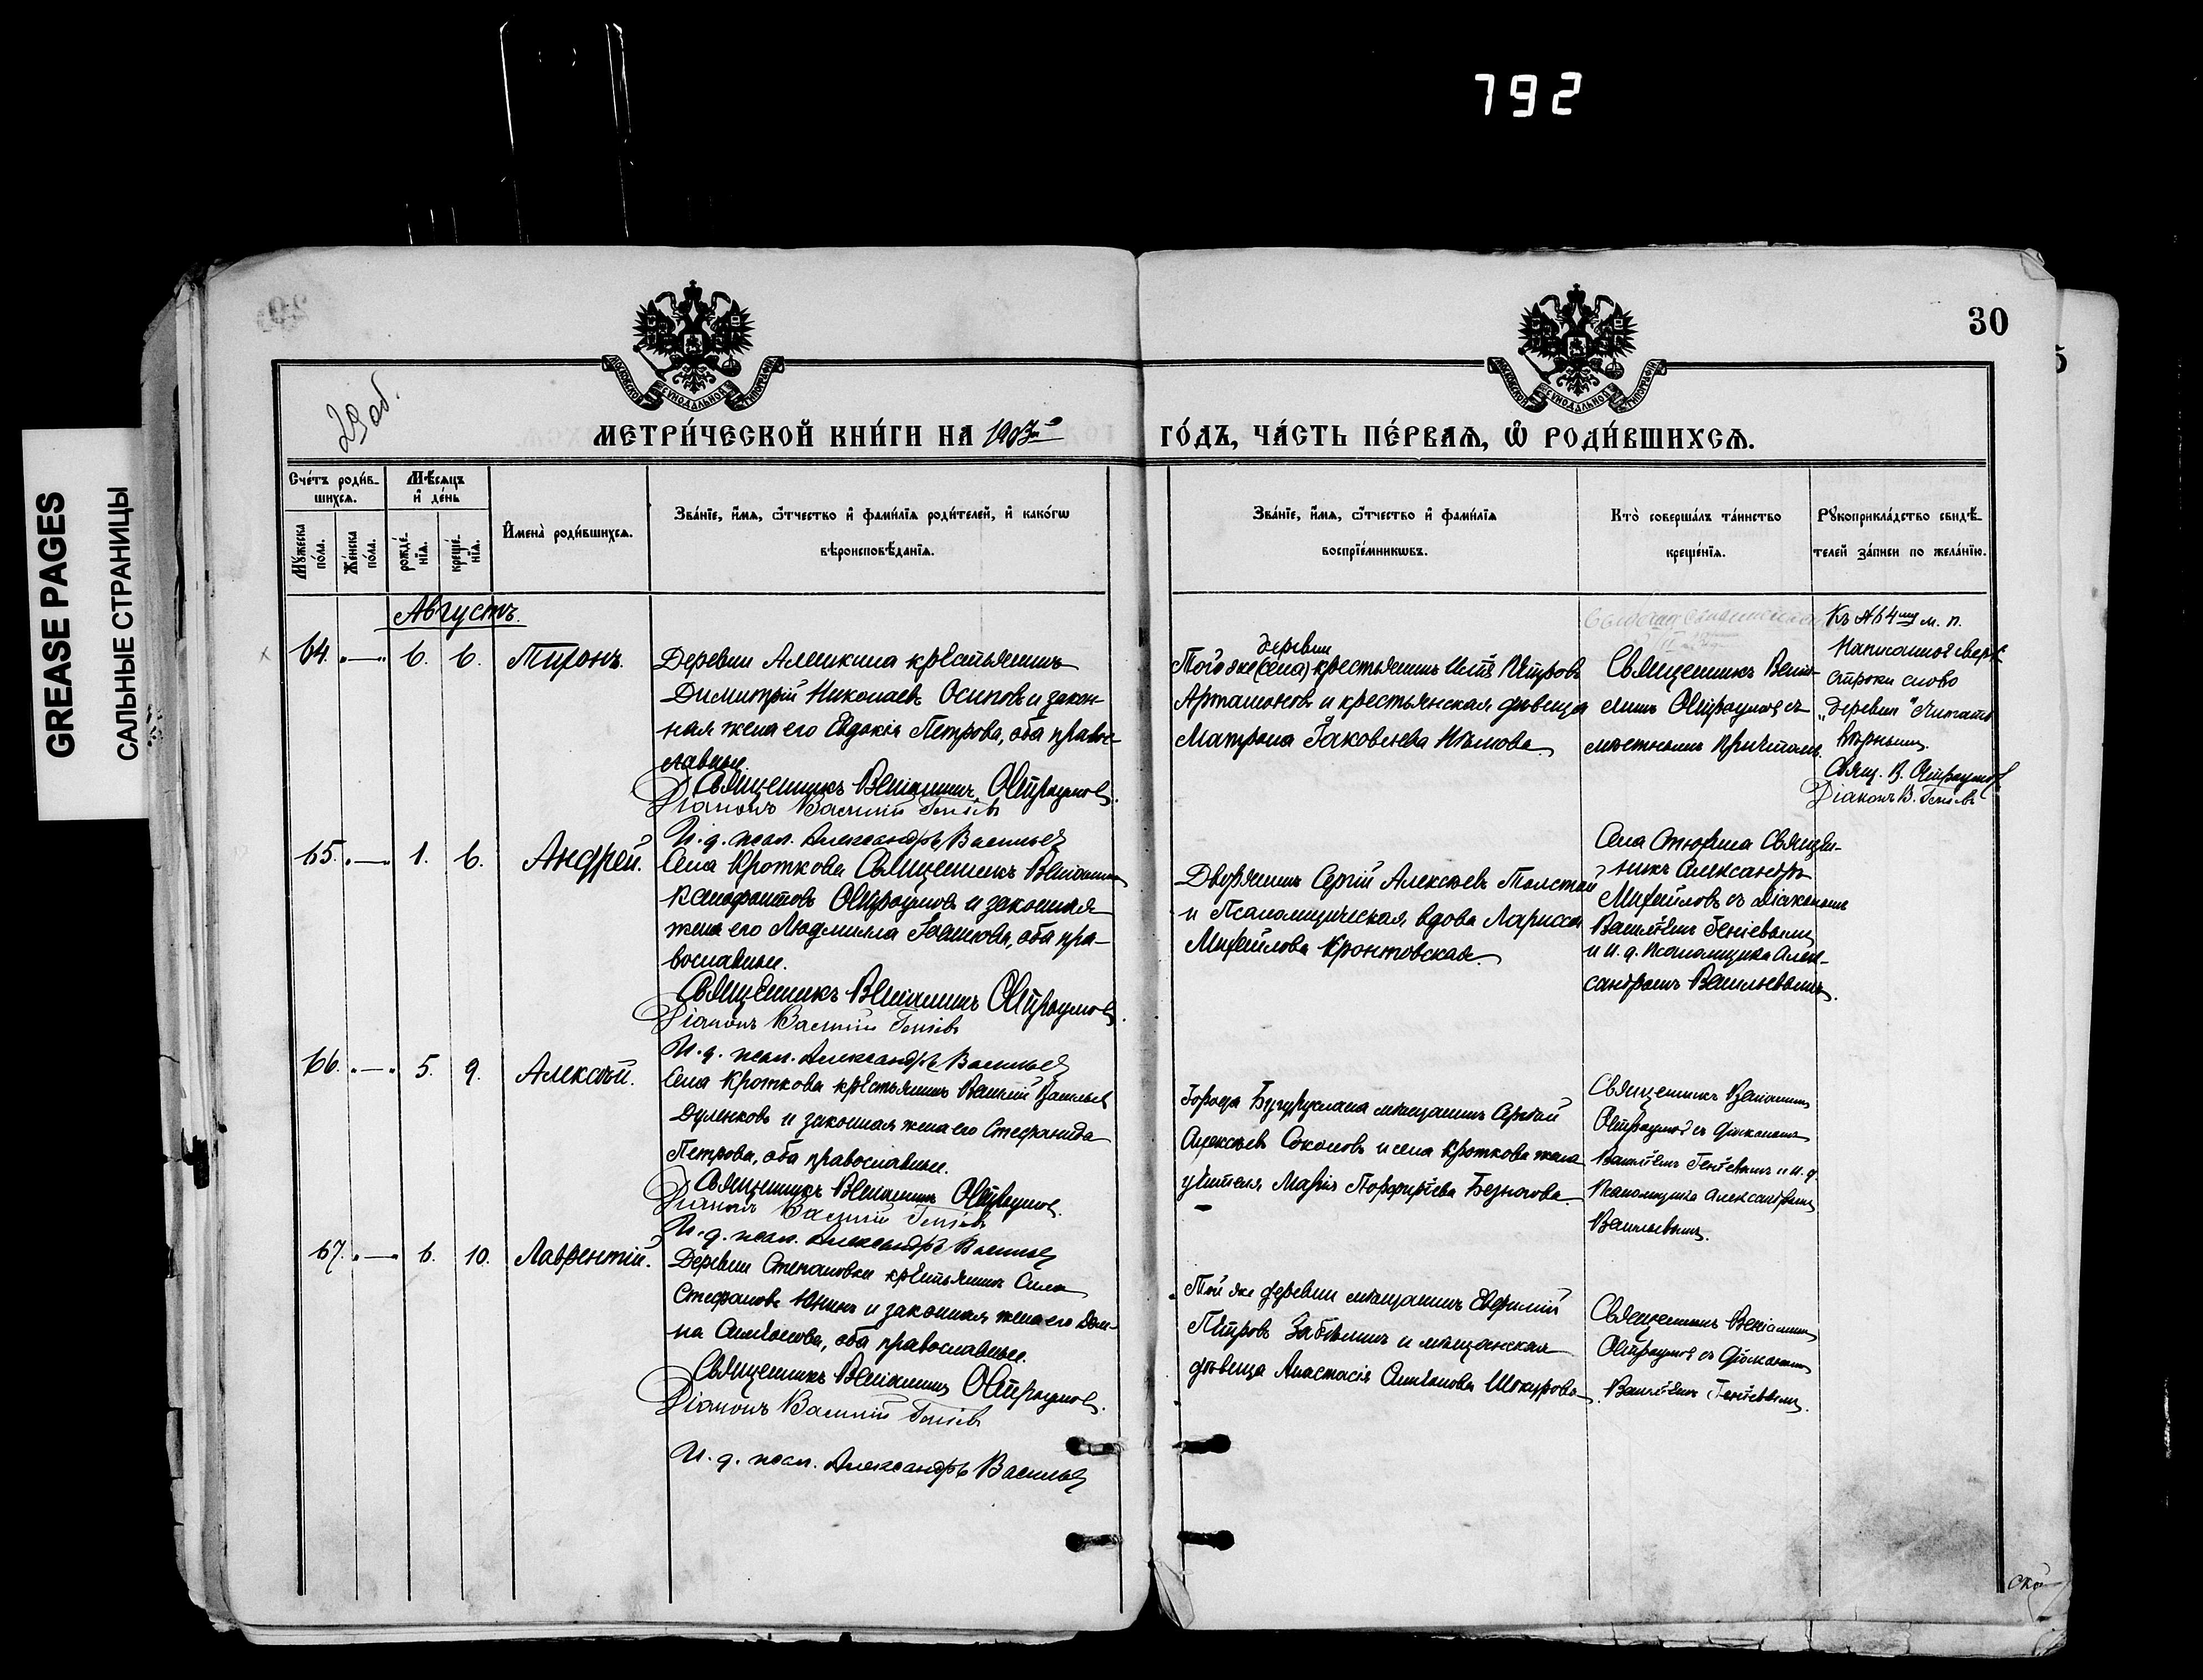 792
GREASE PAGES
САЛЬНЫЕ СТРАНИЦЫ
30
29 об.
МОСКОВСКОЙ СУНОДАЛЬНОЙ ТИПОГРАФІИ
МОСКОВСКОЙ СУНОДАЛЬНОЙ ТИПОГРАФІИ
МЕТРИ́ЧЕСКОЙ КНИ́ГИ НА 1903й ГО́ДЪ, ЧА́СТЬ ПЕ́РВАѦ, Ѽ РОДИ́ВШИХСѦ.
Сче́тъ роди́в-
шихсѧ.
Мꙋ́жеска по́ла.
Же́нска по́ла.
Мѣ́сѧцъ
и҆ де́нь
рожде́-
нїѧ.
креще́-
нїѧ.
И҆мена̀ роди́вшихсѧ.
Зва́нїе, и҆́мѧ, ѻ҆́тчество и҆ фами́лїѧ роди́телей, и҆ како́гѡ
вѣроисповѣ́данїѧ.
Зва́нїе, и҆́мѧ, ѻ҆́тчество и҆ фами́лїѧ
воспрїе́мникѡвъ.
Кто̀ соверша́лъ та́инство
креще́нїѧ.
Рꙋкоприкла́дство свидѣ́-
телей за́писи по жела́нїю.
Августъ.
64. „—„ 6. 6. Миронъ.
Деревни Алешкина крестьянинъ
Димитрій Николаевъ Осиповъ и закон-
ная жена его Евдокія Петрова, оба право-
славные.
Священникъ Веніаминъ Остроумовъ.
Діаконъ Василій Геніевъ
И. д. псал. Александръ Васильевъ
деревни
Того же (села) крестьянинъ Петровъ
Артамоновъ и крестьянская дѣвица
Матрона Іаковлева
Священникъ Веніа-
минъ Остроумовъ съ
мѣстнымъ причтомъ.
Къ № 64му м. п.
Написанное сверхъ
строки слово
„деревни“ читать
вѣрнымъ.
Свящ. В. Остроумовъ
Діаконъ В. Геніевъ
65. „—„ 1. 6. Андрей.
Села Кроткова Священникъ Веніаминъ
Ксенофонтовъ Остроумовъ и законная
жена его Людмилла Іоаннова, оба пра-
вославные.
Священникъ Веніаминъ Остроумовъ.
Діаконъ Василій Геніевъ
И. д. псал. Александръ Васильевъ
Дворянинъ Сергій Алексѣевъ Толстой
и Псаломщическая вдова Ларисса
Михайлова Кронтовская.
Села Священ-
никъ Александръ
Михайловъ съ Діакономъ
Василіемъ Геніевымъ
и И. д. псаломщика Алек-
сандромъ Васильевымъ.
66. „—„ 5. 9. Алексѣй.
Села Кроткова крестьянинъ Василій Васильевъ
Дуленковъ и законная жена его Стефанида
Петрова, оба православные.
Священникъ Веніаминъ Остроумовъ.
Діаконъ Василій Геніевъ
И. д. псал. Александръ Васильевъ
Города Бугуруслана мѣщанинъ Сергѣй
Алексѣевъ Соколовъ и села Кроткова жена
учителя Марія Порфиріева Безногова.
Священникъ Веніаминъ
Остроумовъ съ діакономъ
Василіемъ Геніевымъ и и. д.
Псаломщика Александромъ
Васильевымъ.
67. „—„ 6. 10. Лаврентій.
Деревни Степановки крестьянинъ Сила
Стефановъ Юнинъ и законная жена его Дом-
на Симеонова, оба православные.
Священникъ Веніаминъ Остроумовъ.
Діаконъ Василій Геніевъ
И. д. псал. Александръ Васильевъ
Той же деревни мѣщанинъ Евфимій
Петровъ Забѣлинъ и мѣщанская
дѣвица Анастасія Симеонова Шокурова.
Священникъ Веніаминъ
Остроумовъ съ діакономъ
Василіемъ Геніевымъ.